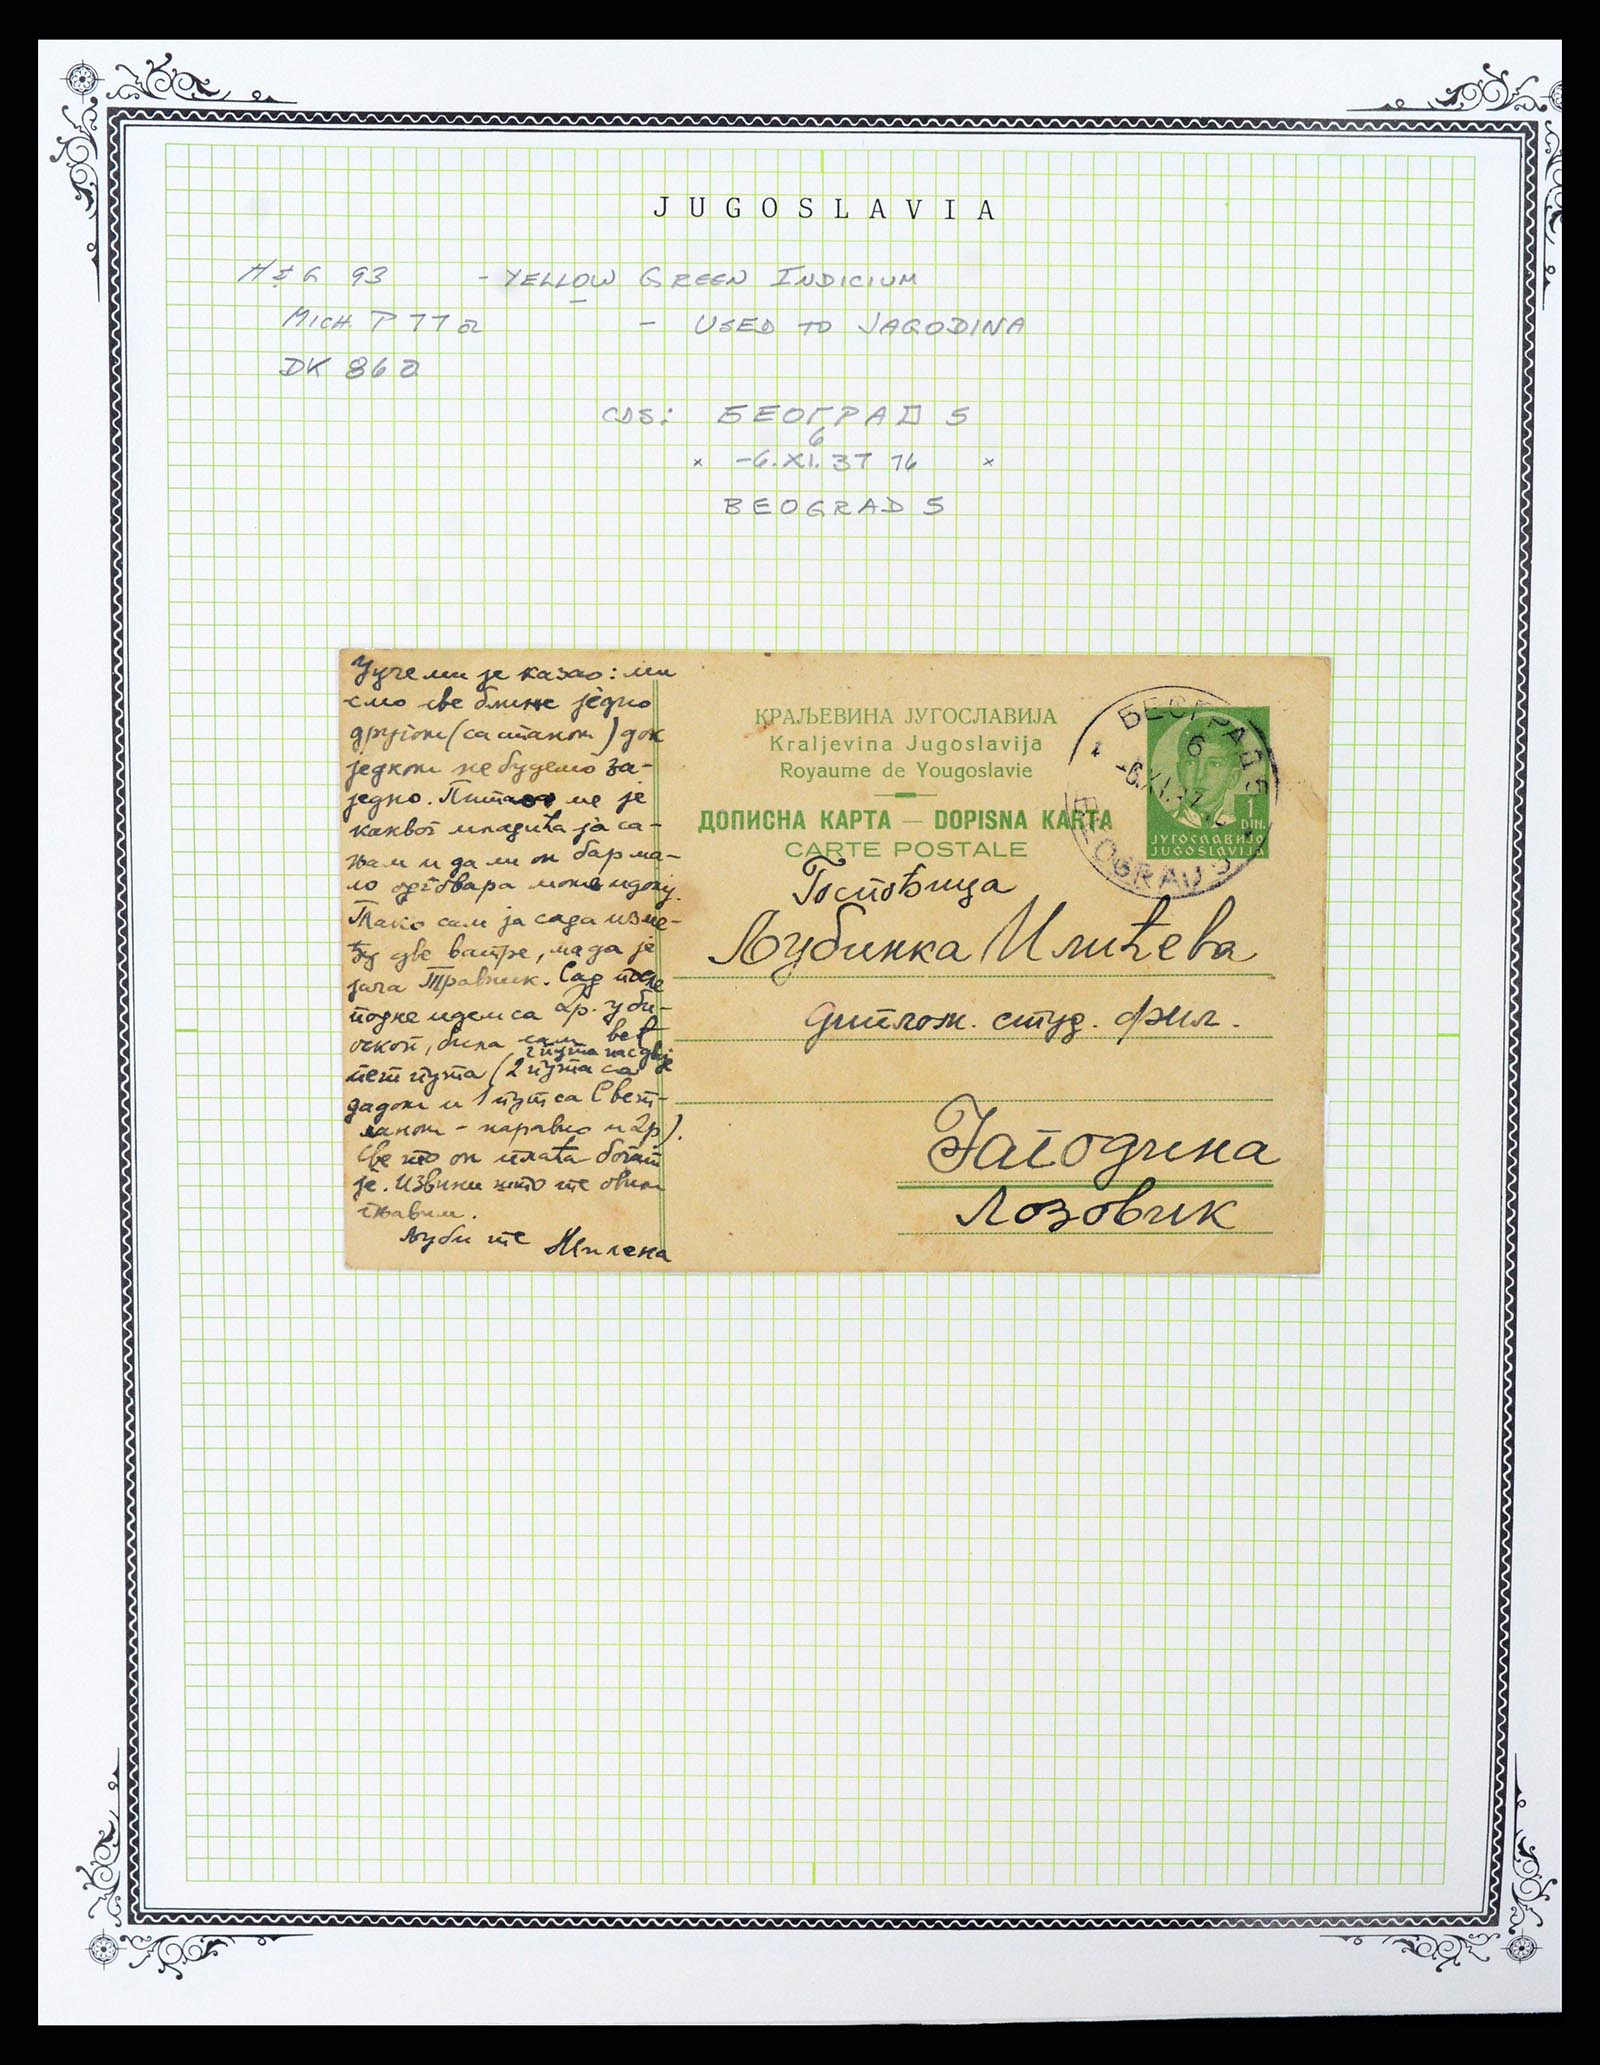 JUGOSLAVIA
H & G 93 - YELLOW GREEN INDICIUM
MICH. P 77 a - USED TO JAGODINA
DK 86 a
CDS: БЕОГРАД 5
6
* -6.XI.37 16 *
BEOGRAD 5
Јуче ми је казао: ми
смо све ближе једно
другом (са станом) док
једном не будемо за-
једно. Питао ме је
каквог младића ја са-
њам и да ли он бар ма-
ло одговара моме идолу.
Тако сам ја сада изме-
ђу две ватре, мада је
јача Травник. Сад после
подне идем са Др. у би-
оскоп, била сам већ
пет пута (2 пута са
2 пута нас двоје
дадом и 1 пут са Свет-
ланом - наравно и Др).
Све то он плаћа богат
је. Извини што те овим
гњавим.
Љуби те Милена
КРАЉЕВИНА ЈУГОСЛАВИЈА
Kraljevina Jugoslavija
Royaume de Yougoslavie
ДОПИСНА КАРТА — DOPISNA KARTA
CARTE POSTALE
БЕОГРАД 5
6
-6.XI.37
BEOGRAD 5
1
DIN.
ЈУГОСЛАВИЈА
JUGOSLAVIJA
Госпођица
Љубинка Илићева
диплом. студ. фил.
Јагодина
Лозовик